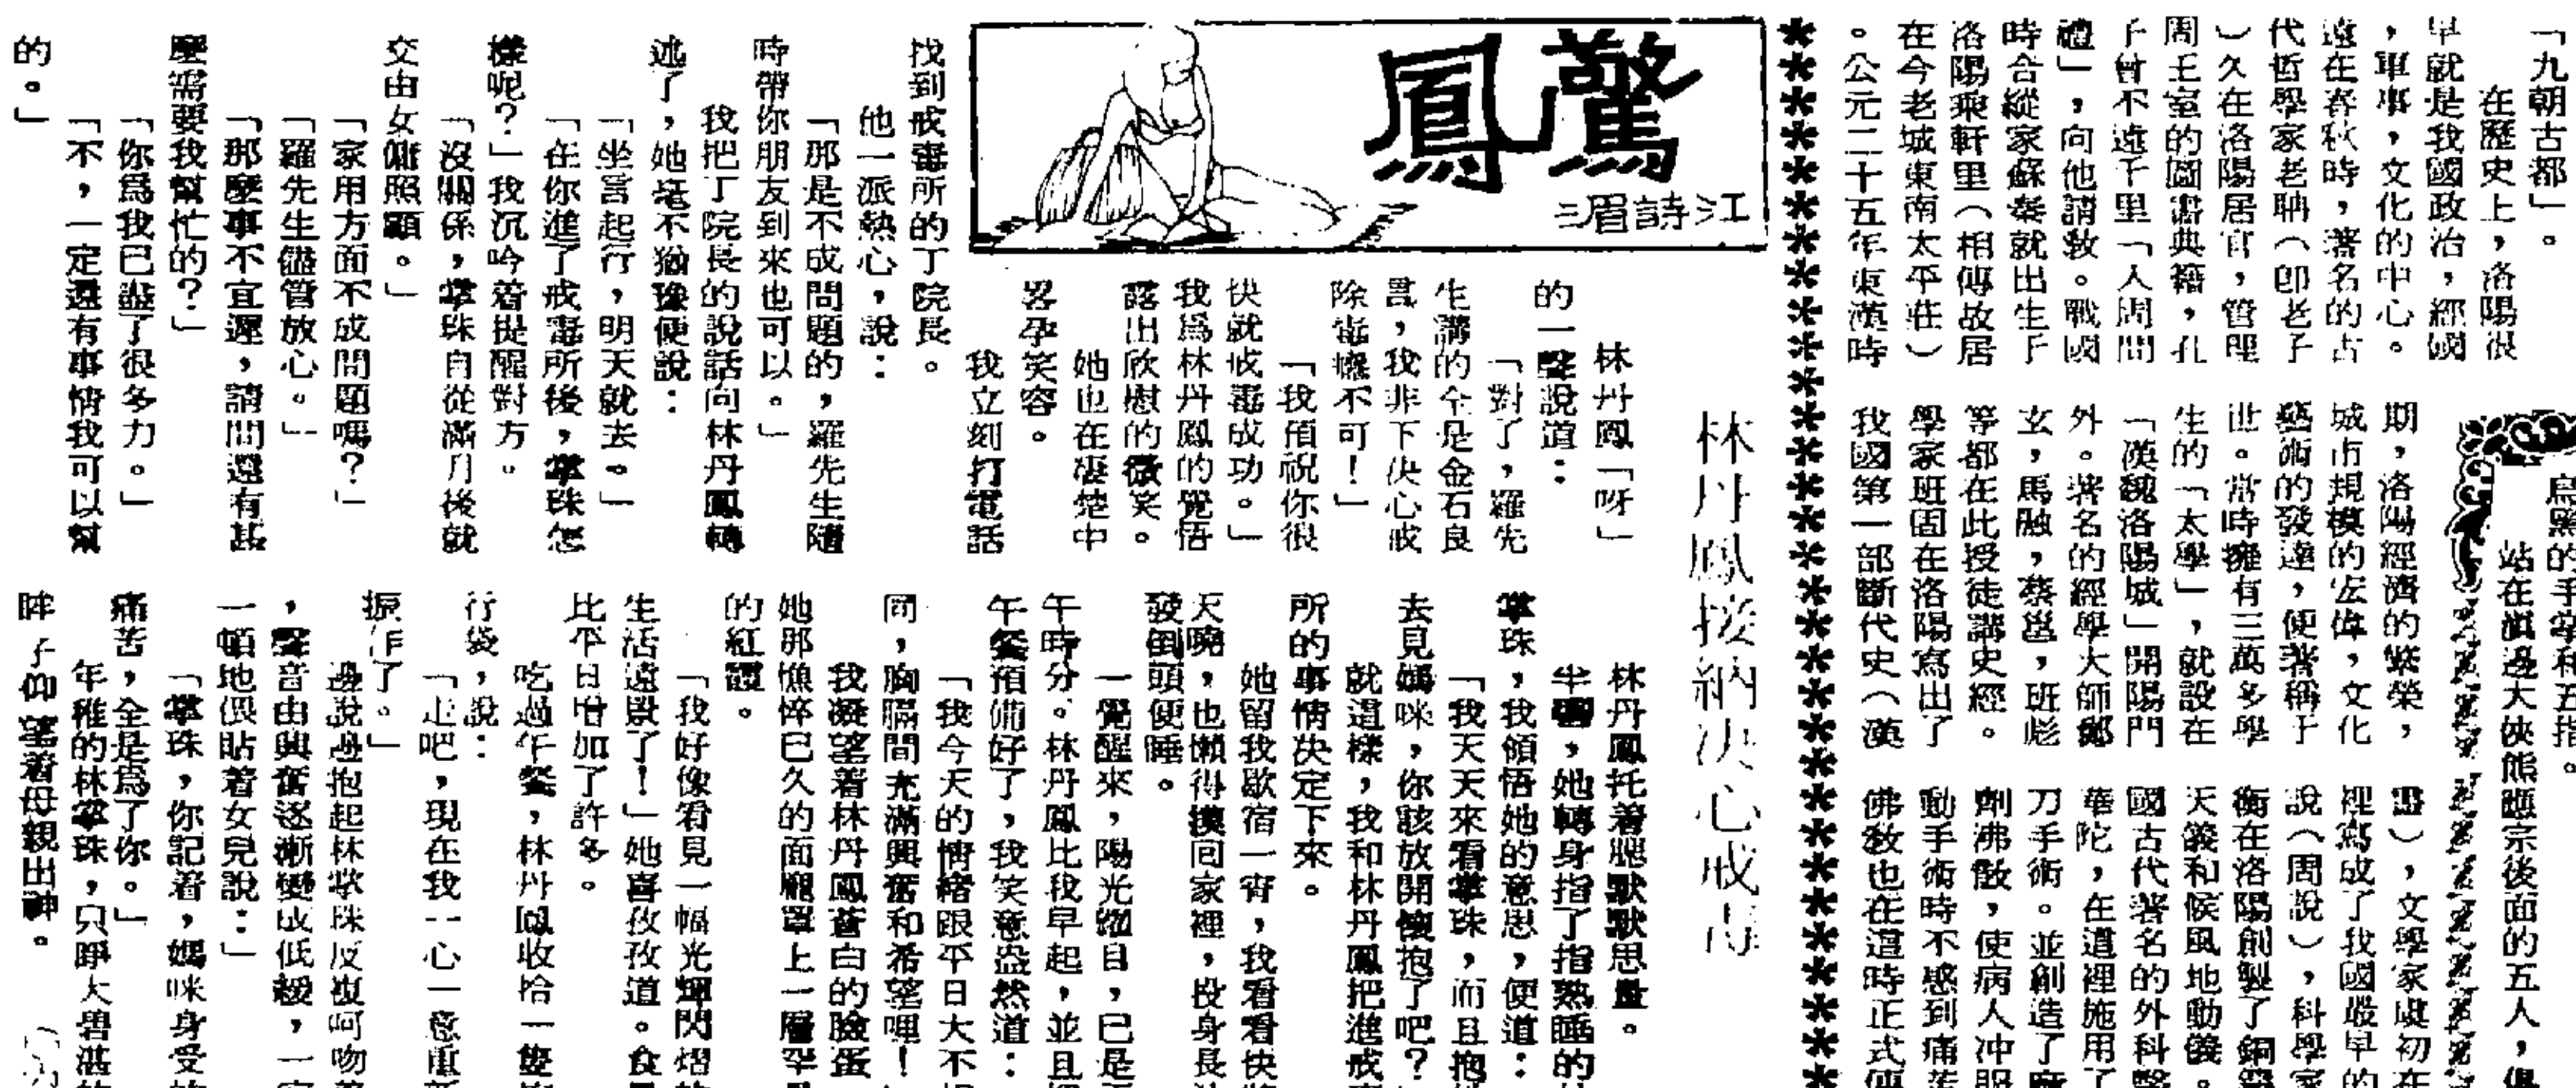 「九朝古都」。
在歷史上，洛陽很
早就是我國政治，經國
，軍事，文化的中心。
遠在春秋時，著名的古
代哲學家老聃（卽老子
）久在洛陽居官，管理
周王室的圖書典籍，孔
子曾不遠千里「入周問
禮」，向他請教。戰國
時合縱家蘇秦就出生于
洛陽乘軒里（相傳故居
在今老城東南太平莊）
。公元二十五年東漢時
期，洛陽經濟的繁榮，
城市規模的宏偉，文化
藝術的發達，便著稱于
世。當時擁有三萬多學
生的「太學」，就設在
「漢魏洛陽城」開陽門
外。著名的經學大師鄭
玄，馬融，蔡邕，班彪
等都在此授徒講史經。
學家班固在洛陽寫出了
我國第一部斷代史（漢
書），文學家虞初在
裡寫成了我國最早的
說（周說），科學家
衡在洛陽創製了銅
天儀和候風地動儀。
國古代著名的外科醫
華陀，在這裡施用了
刀手術。並創造了麻
劑沸散，使病人冲服
動手術時不感到痛苦
佛教也在這時正式傳
烏黑的手掌和五指。
站在滇邊大俠熊應宗後面的五人，俱
驚鳳
江詩湄
林丹鳳接納決心戒毒
林丹鳳「呀」
的一聲說道：
「對了，羅先
生講的全是金石良
言，我非下決心戒
除毒癮不可！」
「我預祝你很
快就戒毒成功。」
我爲林丹鳳的覺悟
露出欣慰的微笑。
她也在凄楚中
畧孕笑容。
我立刻打電話
找到戒毒所的丁院長。
他一派熱心，說：
「那是不成問題的，羅先生隨
時帶你朋友到來也可以。」
我把丁院長的說話向林丹鳳轉
述了，她毫不猶豫便說：
「坐言起行，明天就去。」
「在你進了戒毒所後，掌珠怎
樣呢？」我沉吟着提醒對方。
「沒關係，掌珠自從滿月後就
交由女傭照顧。」
「家用方面不成問題嗎？」
「羅先生儘管放心。」
「那麼事不宜遲，請問還有甚
麼需要我幫忙的？」
「你爲我已盡了很多力。」
「不，一定還有事情我可以幫
的。」
林丹鳳托着腮默默思量。
半响，她轉身指了指熟睡的
掌珠，我領悟她的意思，便道：
「我天天來看掌珠，而且抱
去見媽咪，你該放開懷抱了吧？
就這樣，我和林丹鳳把進戒
所的事情決定下來。
她留我歇宿一宵，我看看快
天曉，也懶得摸回家裡，投身長
發倒頭便睡。
一覺醒來，陽光耀目，已是
午時分。林丹鳳比我早起，並且
午餐預備好了，我笑意盎然道：
「我今天的情緒跟平日大不
同，胸膈間充滿興奮和希望哩！
我凝望着林丹鳳蒼白的臉蛋
她那憔悴已久的面龐罩上一層罕
的紅霞。
「我好像看見一幅光輝閃熠
生活遠景了！」她喜孜孜道。食
比平日增加了許多。
吃過午餐，林丹鳳收拾一隻
行袋，說：
「走吧，現在我一心一意重新
振作了。」
邊說邊抱起林掌珠反複呵吻
，聲音由興奮逐漸變成低緩，一
頓地偎貼着女兒說：」
「掌珠，你記着，媽咪身受
痛苦，全是爲了你。」
年稚的林掌珠，只睜大碧湛
眸子仰望着母親出神。